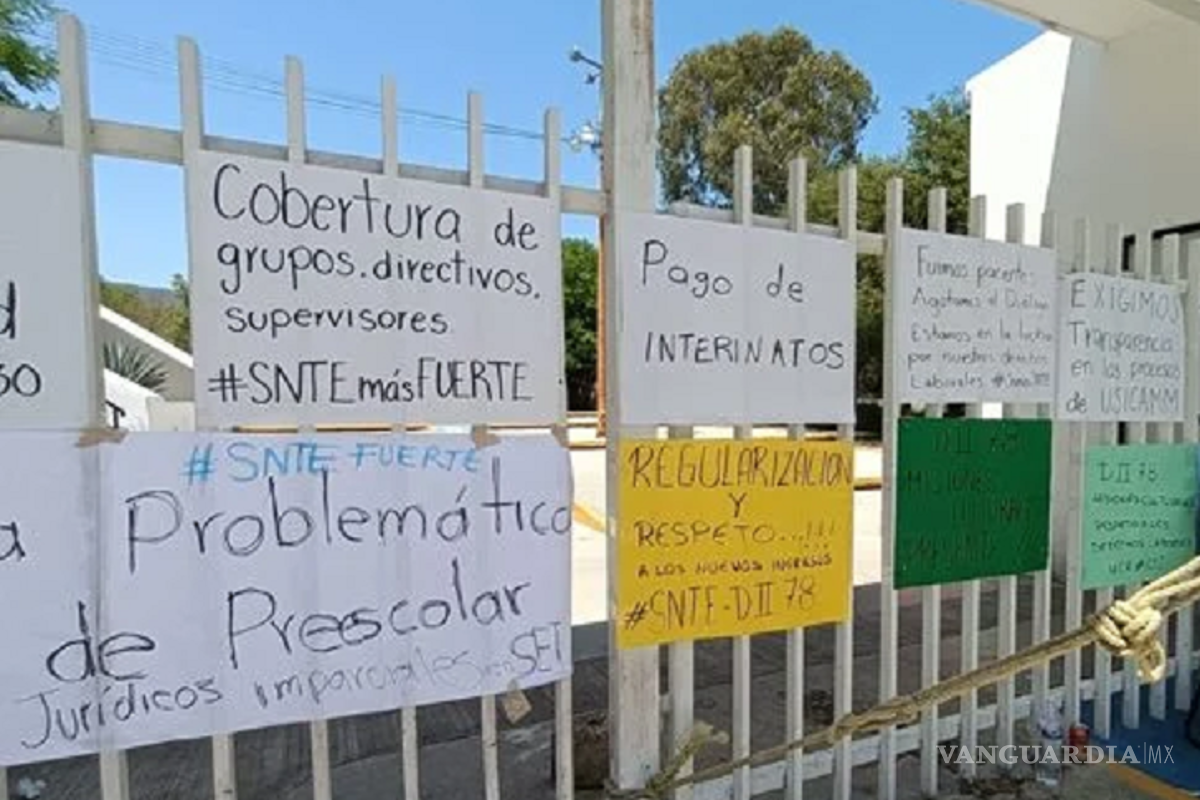 Cobertura de
grupos.directivos.
supervisores
#SNTEmásFUERTE
Pago de
INTERINATOS
Estamos en la lucha
por nuestros derechos
Laborales
EXIGIMOS
Transparencia
en los procesos
de USICAMM
#SNTE FUERTE
a Problemático
de Preescolar
Jurídicos imparciales en SET
REGULARIZACION
Y
RESPETO...!!!
A LOS NUEVOS INGRESOS
#SNTE-DII 78
DII 78
DII 78
VANGUARDIA|MX